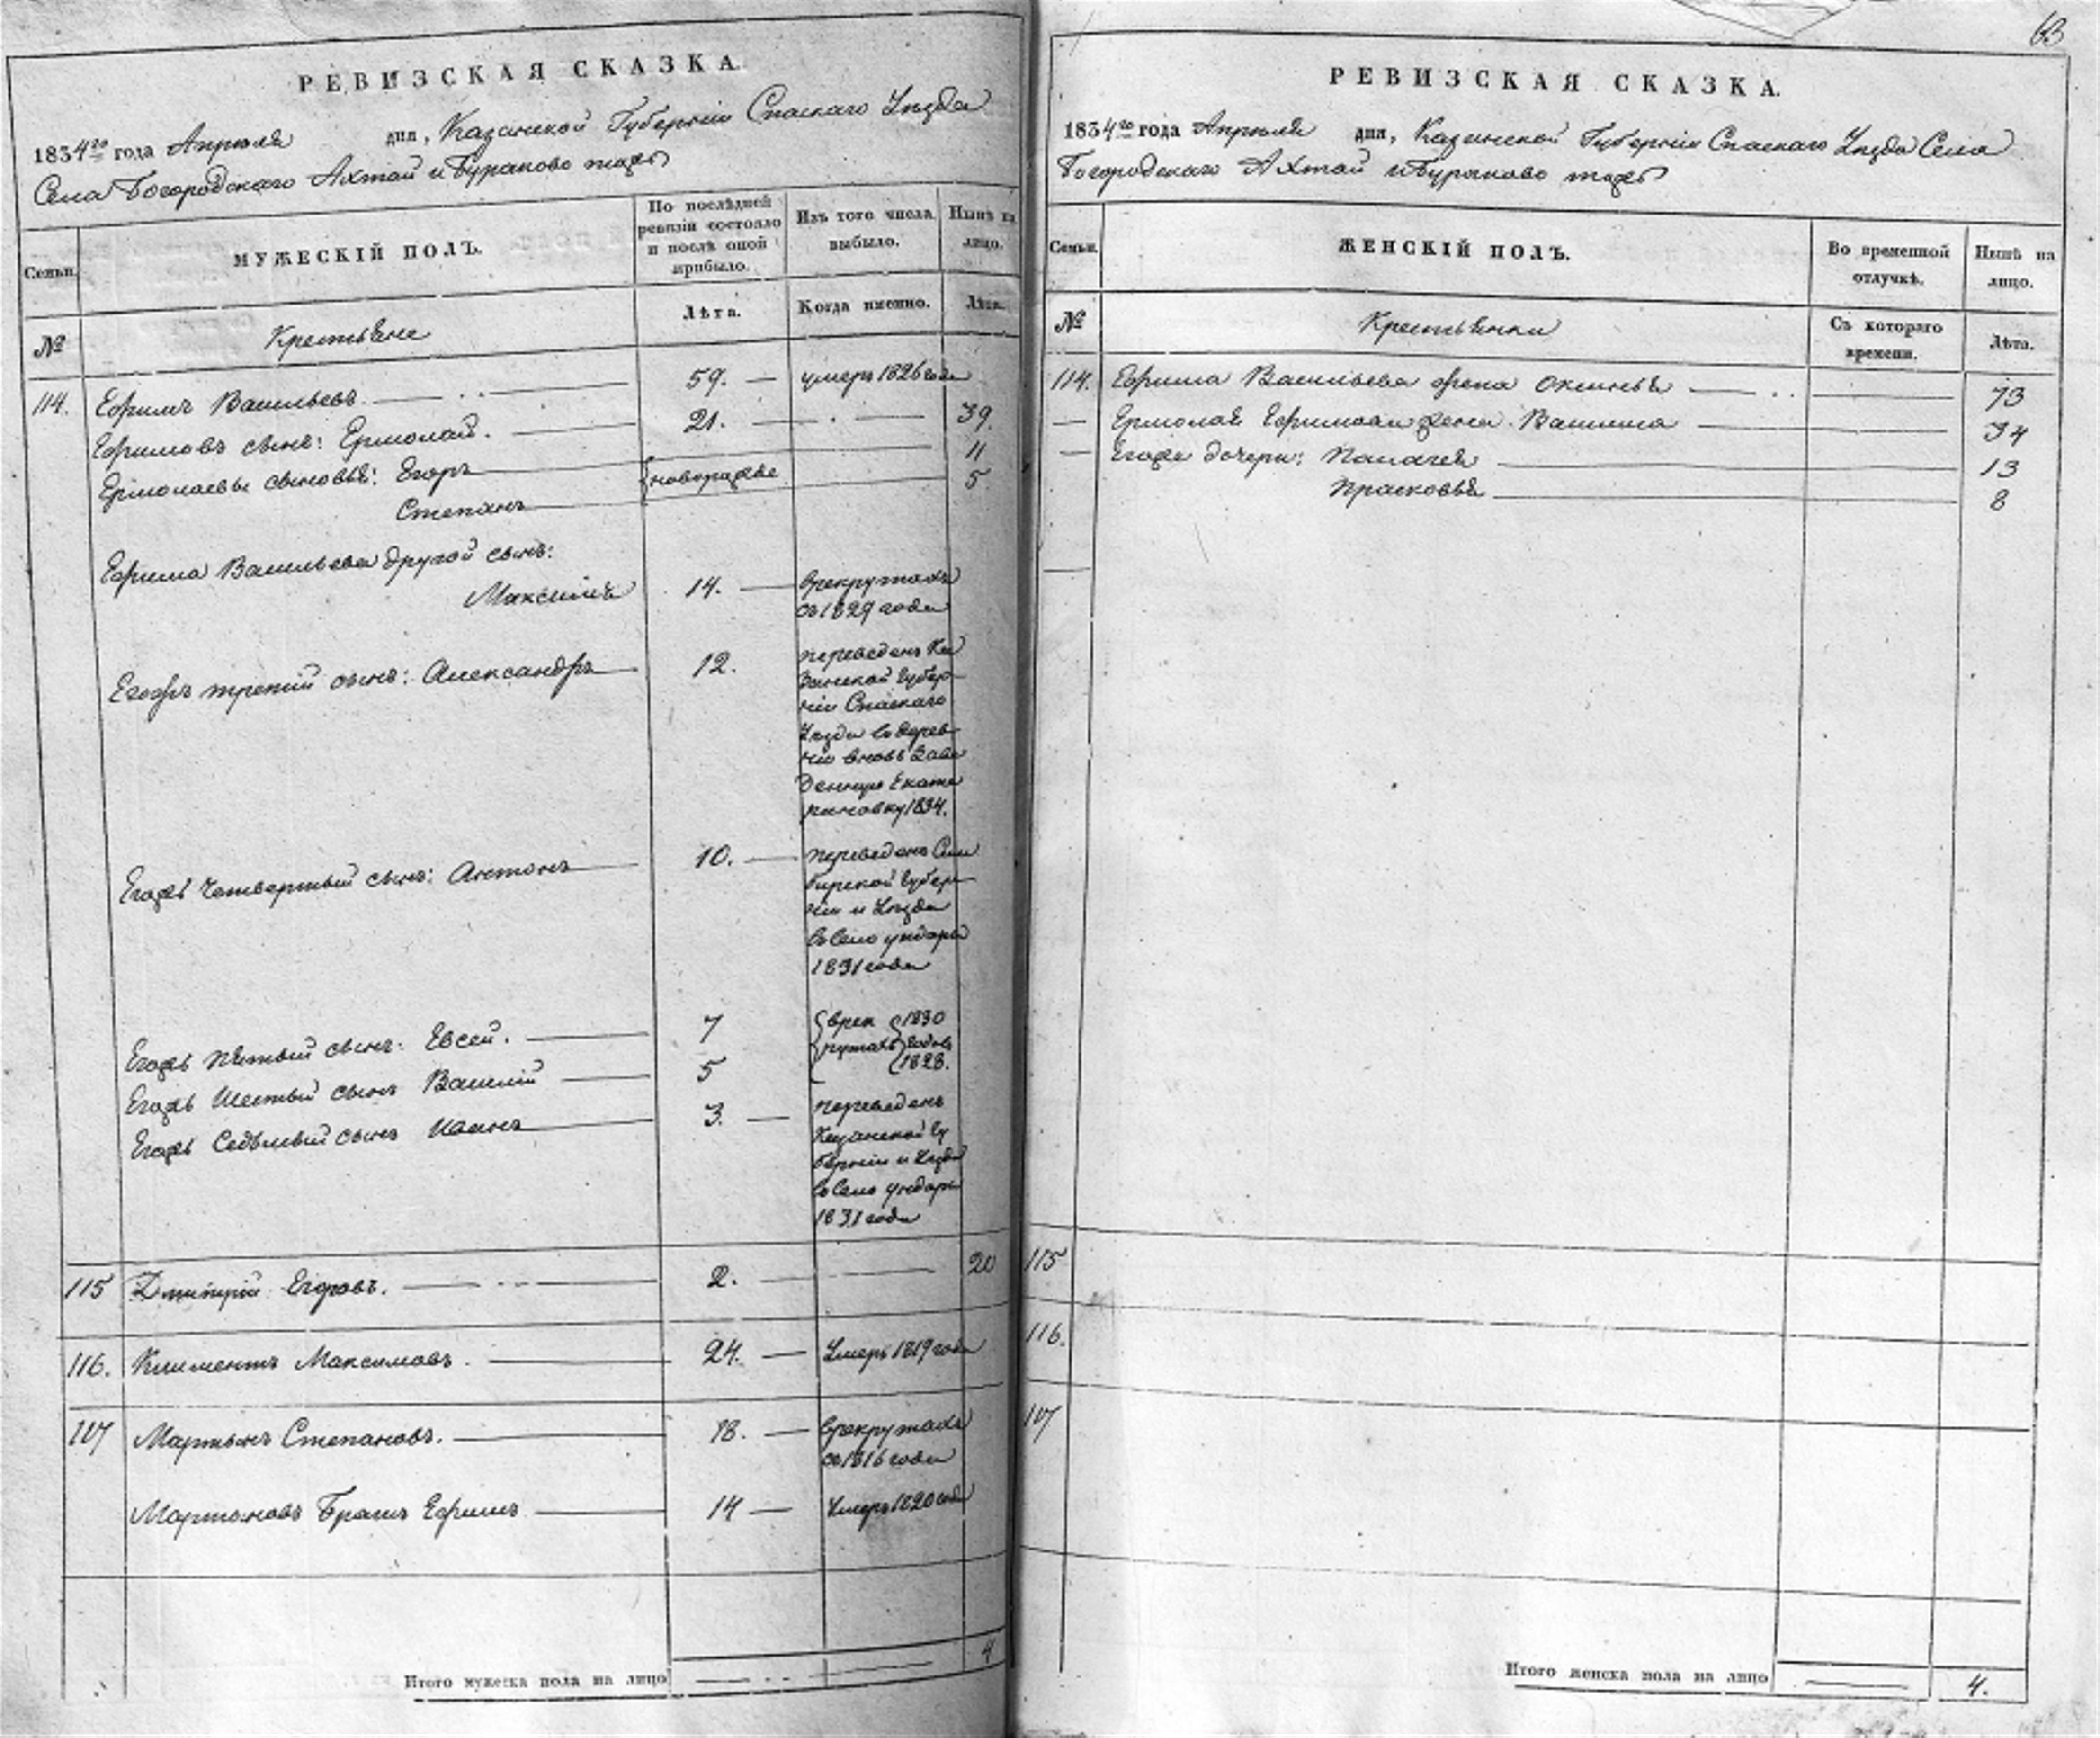 РЕВИЗСКАЯ СКАЗКА.
1834го года Апреля дня, Казанской Губернiи Спаскаго Уезда
Села Богородскаго Ахтай и Бураково тожъ
Семьи.
МУЖЕСКІЙ ПОЛЪ.
По послѣдней ревизіи состояло и послѣ оной прибыло.
Изъ того числа выбыло.
Нынѣ на лицо.
№
Крестьяне
Лѣта.
Когда именно.
Лѣта.
114. Ефимъ Васильевъ. 59. умеръ 1826 года
Ефимовъ сынъ: Ермолай. 21. 39.
Ермолаевы сыновья: Егоръ новорожде 11
Степанъ 5
Ефима Васильева другой сынъ:
Максимъ 14. врекрутахъ
съ 1829 года
Егожъ третий сынъ: Александръ 12. переведенъ Ка
занской Губер
нiи Спаскаго
Уезда въ дерев
ню вновь Заве
денную Екате
риновку 1834.
Егожъ Четвертый сынъ: Антонъ 10. переведенъ Сим
бирской Губер
нiи и Уезда
въ Село ундоры
1831 года
Егожъ пятый сынъ: Евсей. 7 врек 1830
рутахъ годовъ
Егожъ Шестый сынъ Василiй 5 1828.
Егожъ Седьмый сынъ Иванъ 3. переведенъ
Казанской Гу
бернiи и Уезда
въ Село ундоры
1831 года
115 Дмитрiй Егоровъ. 2. 20
116. Климентъ Максимовъ. 24. Умеръ 1819 года
117 Мартынъ Степановъ. 18. врекрутахъ
съ 1816 года
Мартыновъ Братъ Ефимъ 14 Умеръ 1820 года
Итого мужеска пола на лицо 4
63
РЕВИЗСКАЯ СКАЗКА.
1834го года Апреля дня, Казанской Губернiи Спаскаго Уезда Села
Богородскаго Ахтай и Бураково тожъ
Семьи.
ЖЕНСКІЙ ПОЛЪ.
Во временной отлучкѣ.
Нынѣ на лицо.
№
Крестьянки
Съ котораго времени.
Лѣта.
114. Ефима Васильева жена Оксинья 73
Ермолая Ефимова жена Васильева 34
Егоже дочери: Палагея 13
Прасковья 8
115
116.
117
Итого женска пола на лицо 4.